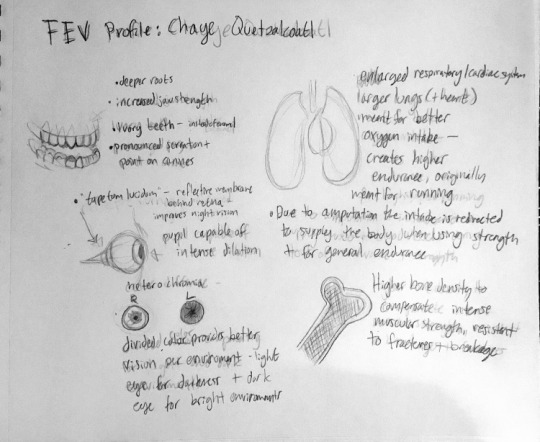 FEV Profile: Chaye Quetzalcoatl
• deeper roots
• increased jaw strength
• Ivory teeth -
• pronounced serration +
point on canines
• "tapetum lucidum" - reflective membrane
behind retina -
improves night vision
pupil capable of
intense dilation
heterochromiac -
R L
divided color provides better
vision per environment - light
eye for darkness + dark
eye for bright environments
enlarged respiratory/cardiac system
larger lungs (+ heart)
meant for better
oxygen intake -
creates higher
endurance, originally
meant for running
• Due to amputation the intake is redirected
to supply the body when using strength
+ for general endurance
Higher bone density to
compensate intense
muscular strength, resistent
to fractures + breakage